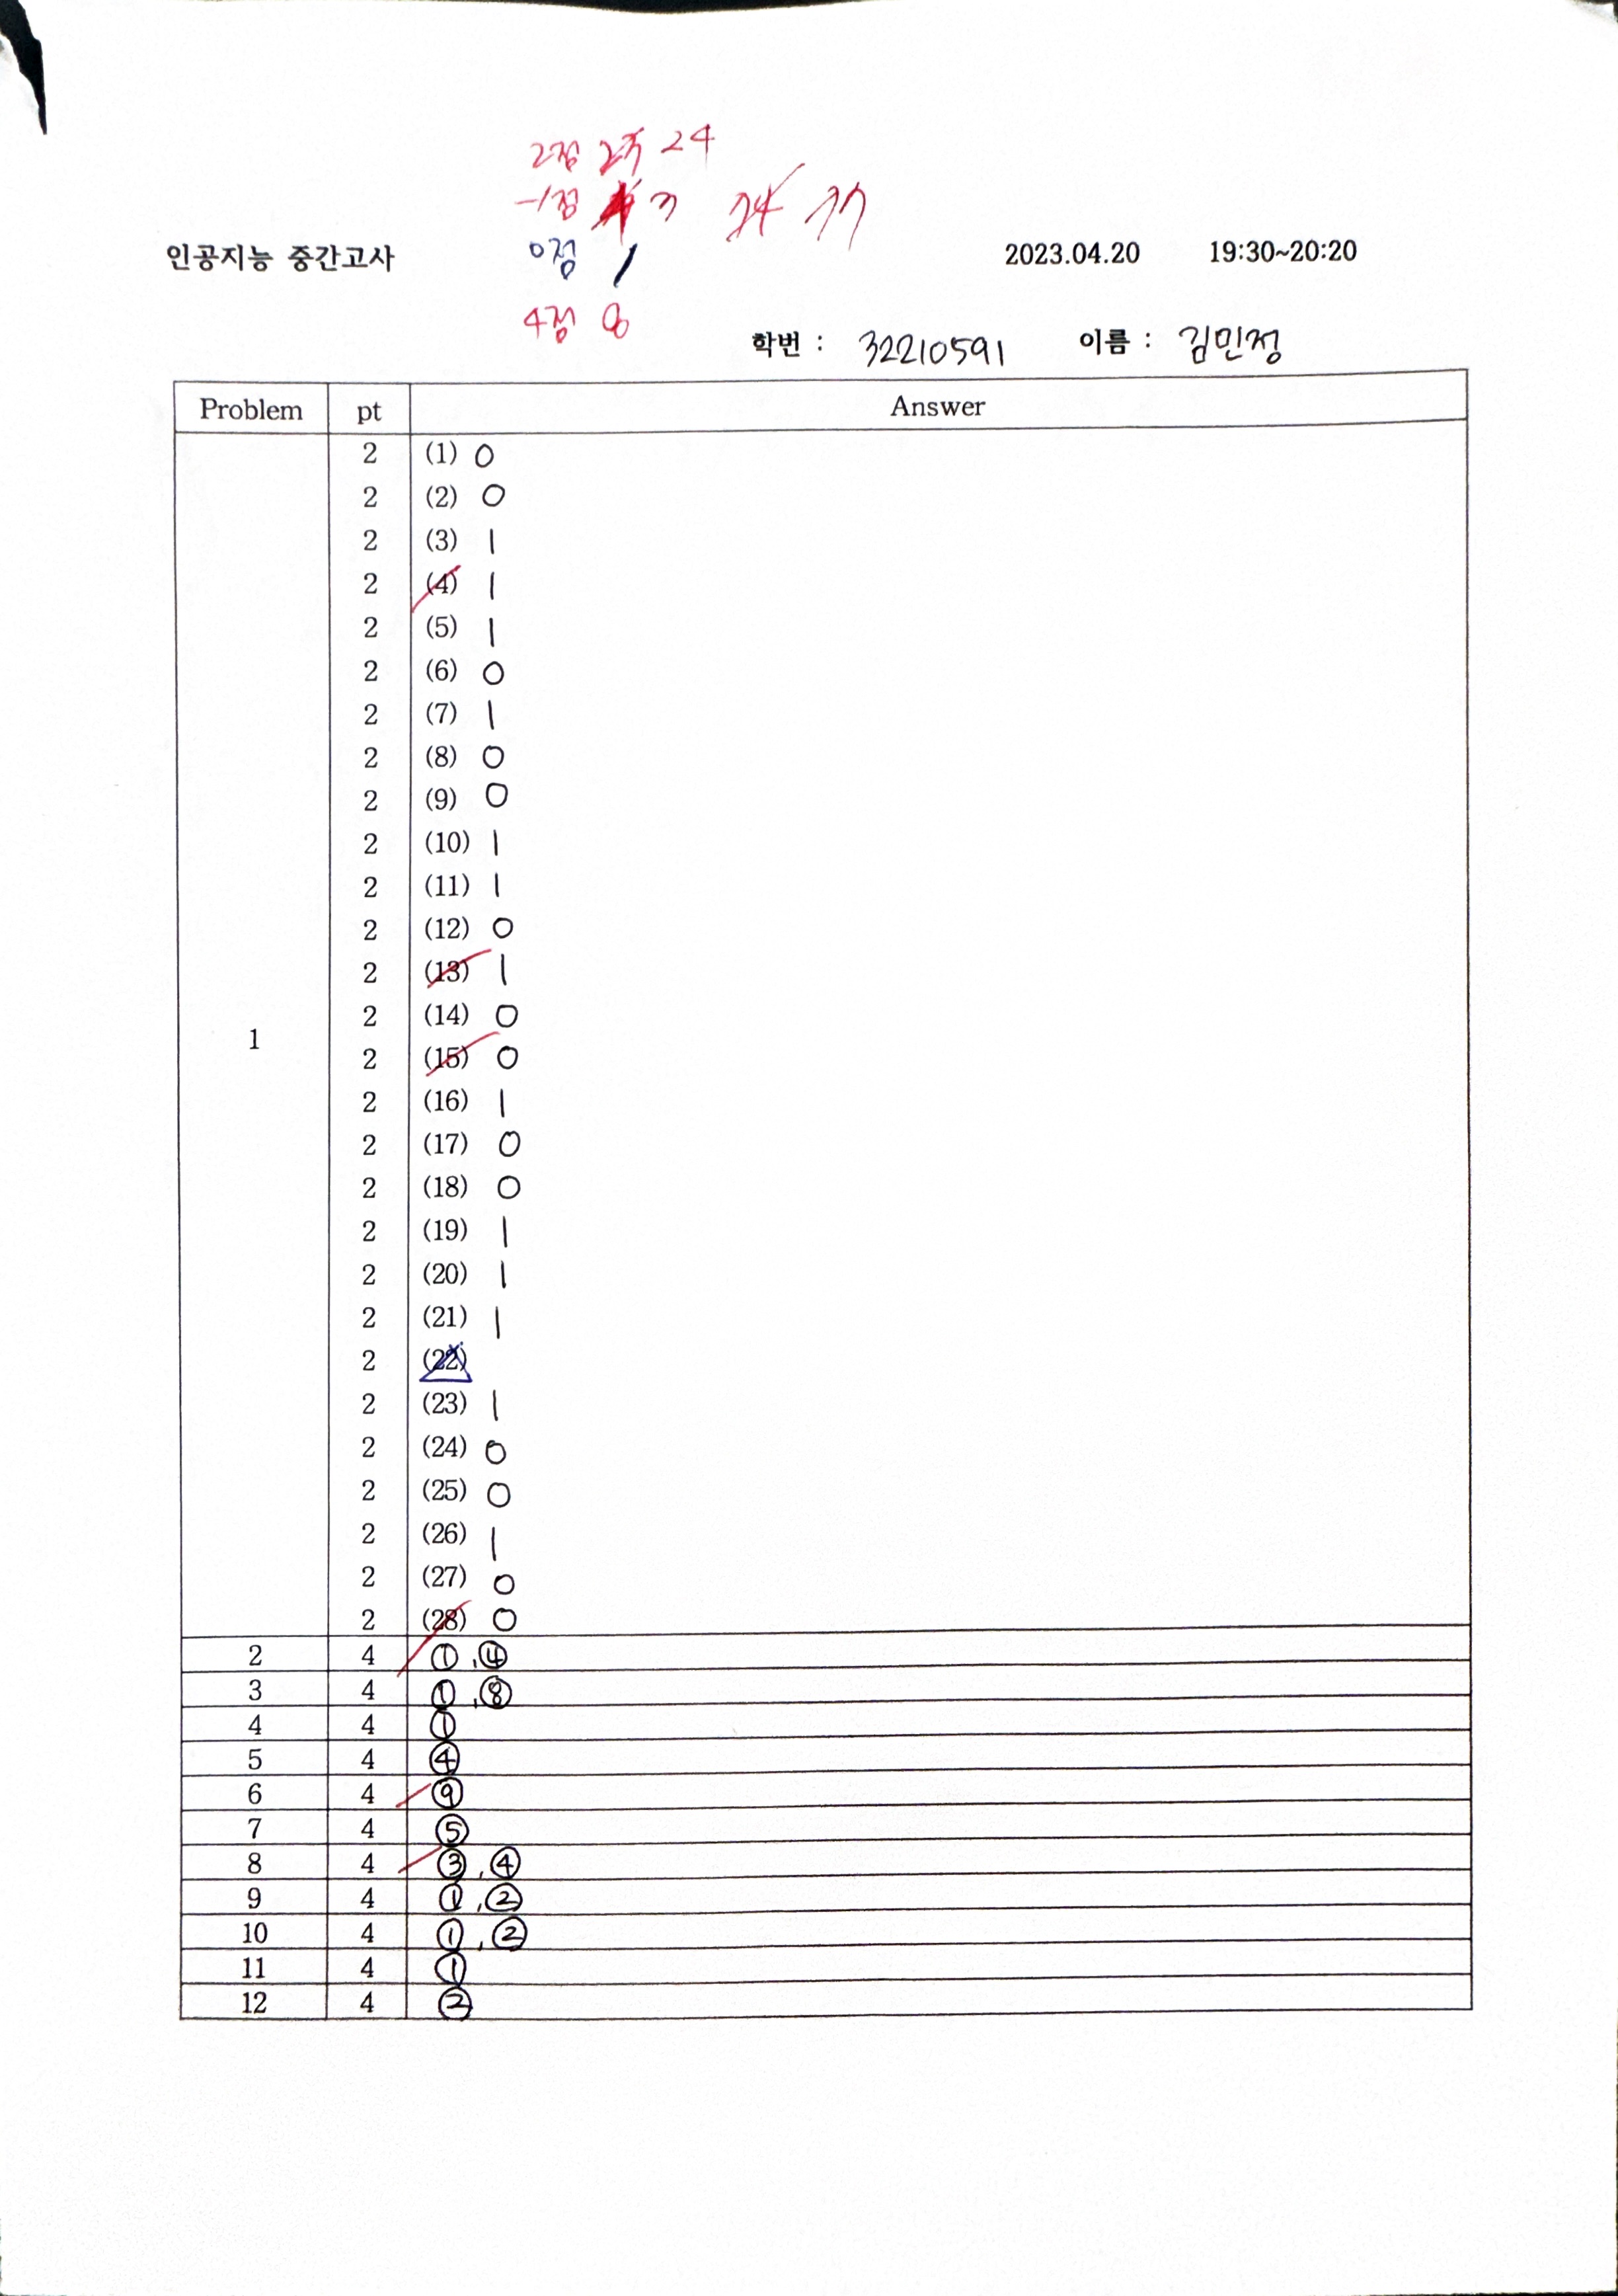 2점 23 24
-1점 4 3 74 77
인공지능 중간고사 0점 / 2023.04.20 19:30~20:20
4점 8
학번 : 32210591 이름 : 김민정
Problem pt Answer
2 (1) 0
2 (2) 0
2 (3) 1
2 (4) 1
2 (5) 1
2 (6) 0
2 (7) 1
2 (8) 0
2 (9) 0
2 (10) 1
2 (11) 1
2 (12) 0
2 (13) 1
2 (14) 0
1 2 (15) 0
2 (16) 1
2 (17) 0
2 (18) 0
2 (19) 1
2 (20) 1
2 (21) 1
2 (22)
2 (23) 1
2 (24) 0
2 (25) 0
2 (26) 1
2 (27) 0
2 (28) 0
2 4 ①,④
3 4 ①,⑧
4 4 ①
5 4 ④
6 4 ⑨
7 4 ⑤
8 4 ③,④
9 4 ①,②
10 4 ①,②
11 4 ①
12 4 ②